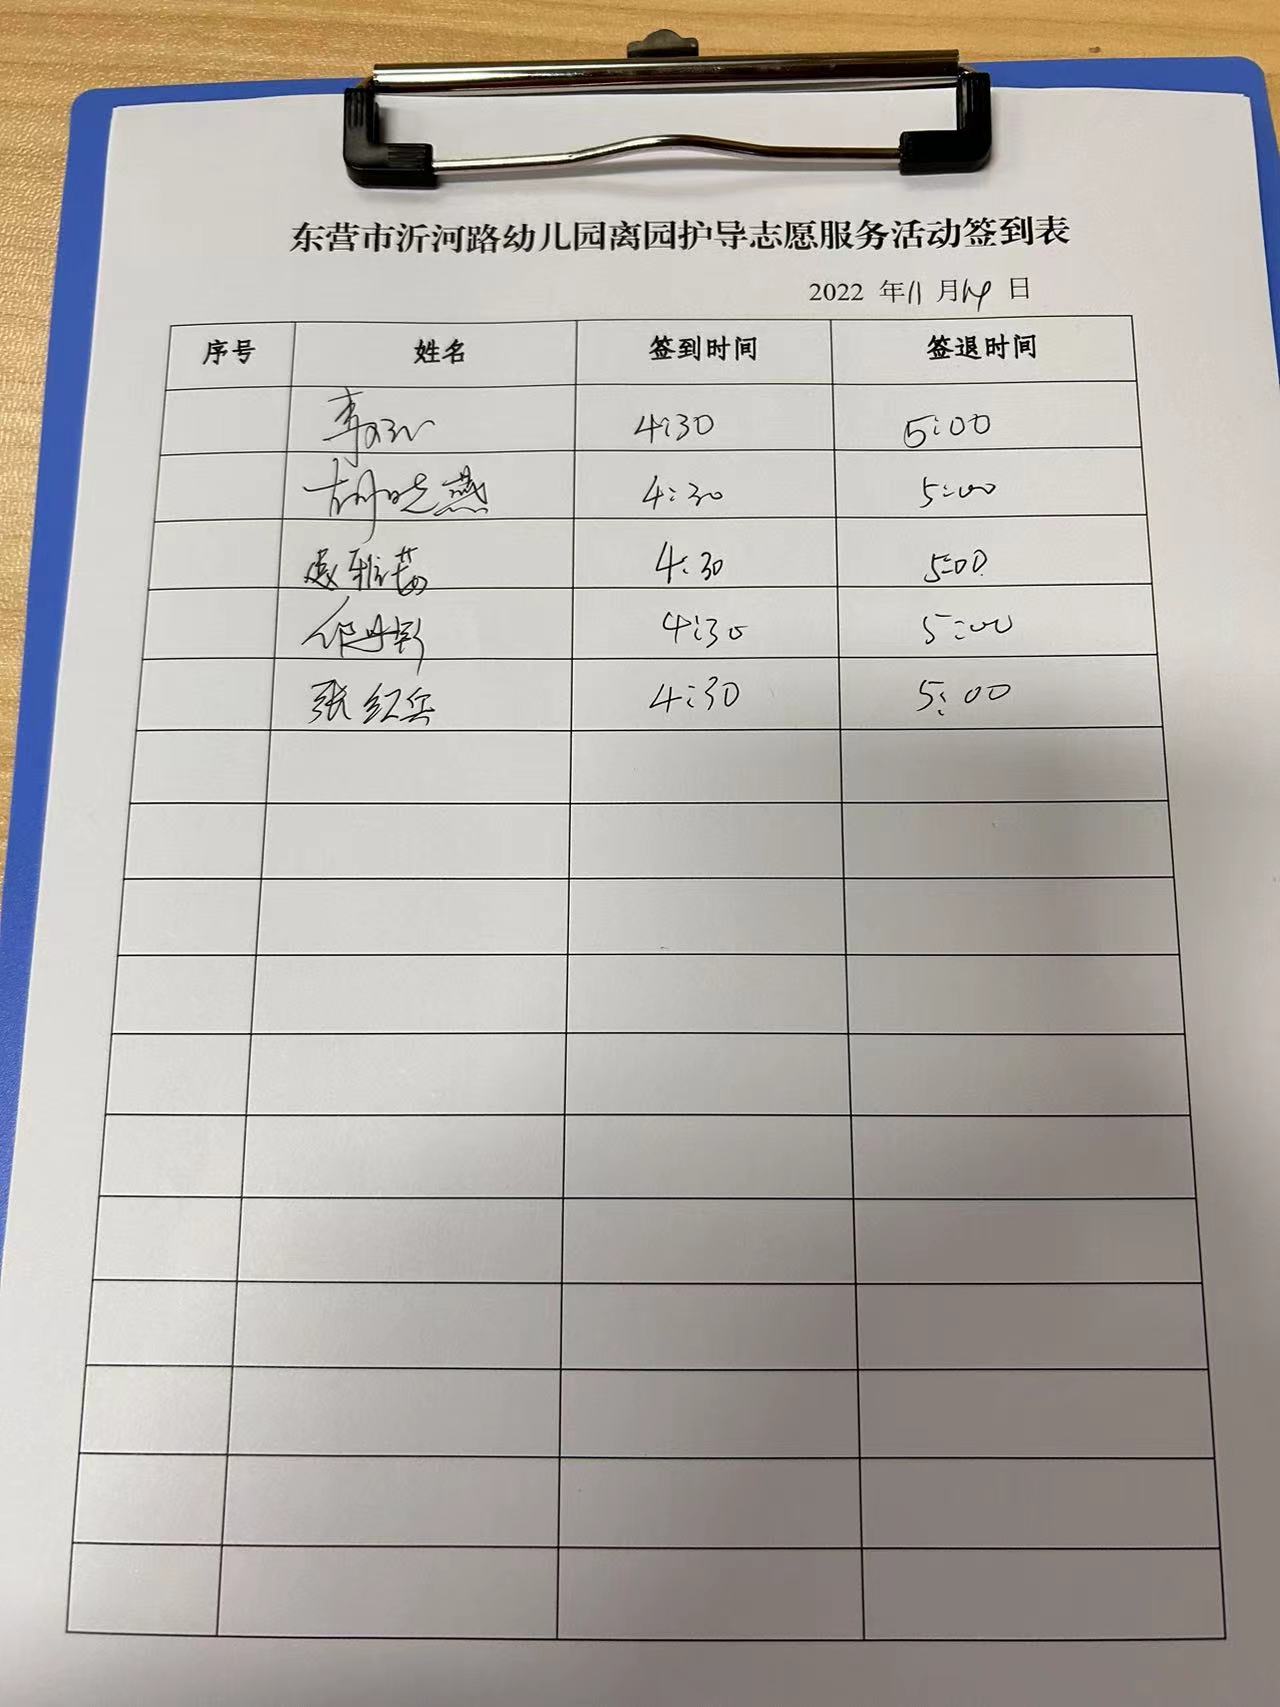 东营市沂河路幼儿园离园护导志愿服务活动签到表
2022 年 11 月 14 日
序号 姓名 签到时间 签退时间
李 4:30 5:00
胡晓燕 4:30 5:00
雅茹 4:30 5:00
4:30 5:00
张红兵 4:30 5:00